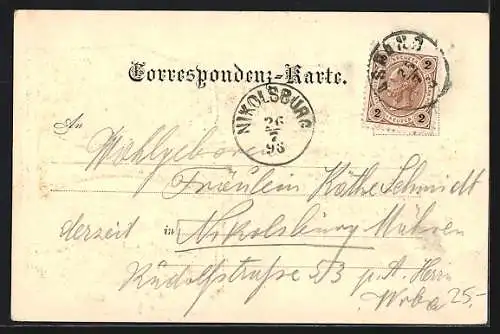 Correspondenz-Karte.
2 2
NIKOLSBURG
26
7
98
An
Wohlgeboren
Fräulein Käthe Schmidt
derzeit in Nikolsburg Mähren
Rudolfstraße 5/3 p. A. Herrn
Wrba
25.-